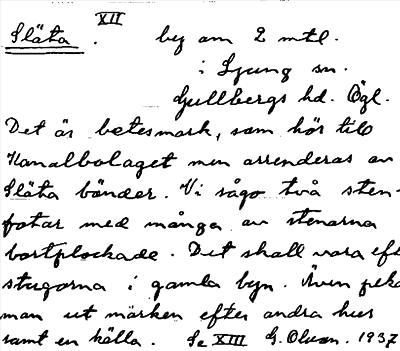 XII
Släta . by om 2 mtl.
i Ljung sn.
Gullbergs hd. Ögl.
Det är betesmark, som hör till
Kanalbolaget men arrenderas av
Släta bönder. Vi sågo två sten-
fotar med många av stenarna
bortplockade. Det skall vara eft
stugorna i gamla byn. Även peka
man ut märken efter andra hus
samt en källa. Se XIII G. Olson. 1937